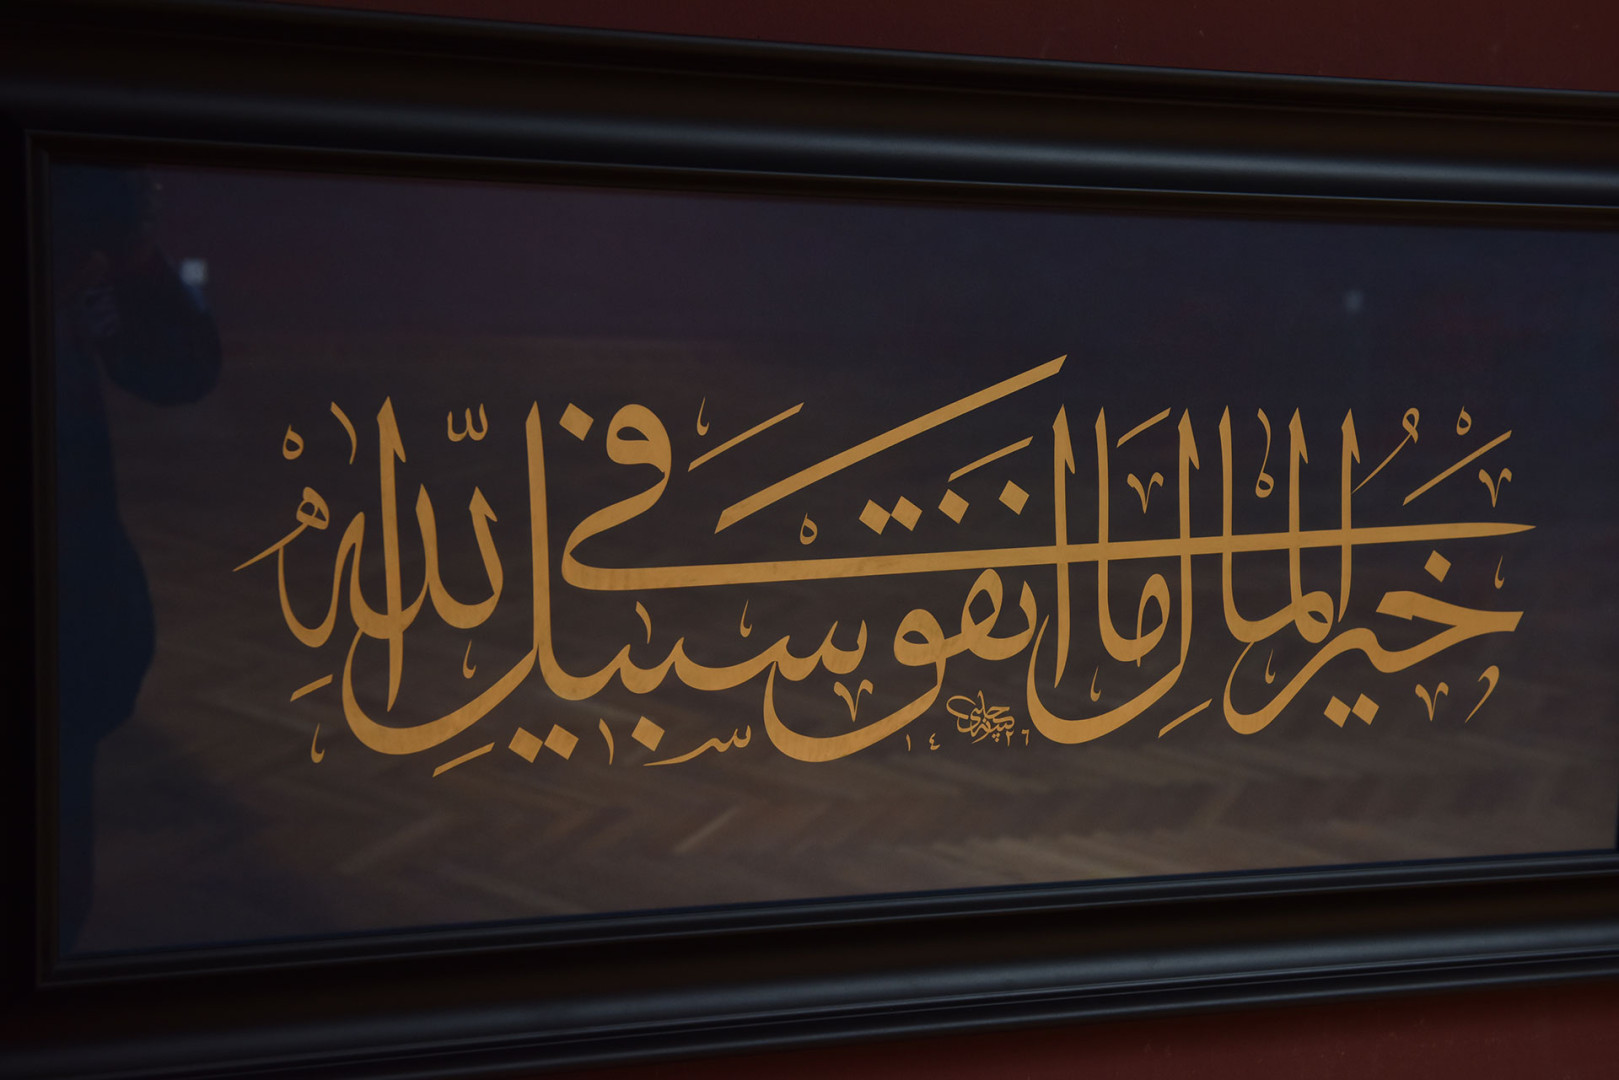 خير المال ما انفق في سبيل الله
١٤٢٦